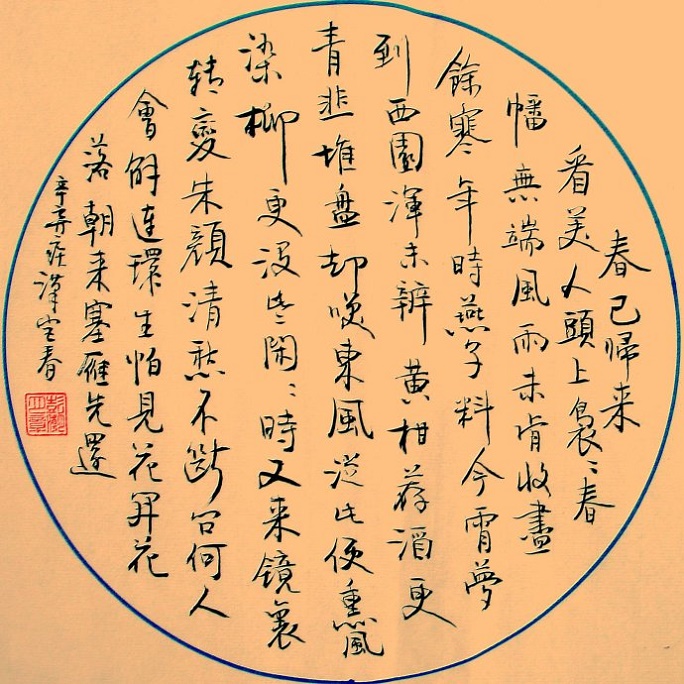 春已歸来
看美人頭上裊〻春
幡無端風雨未肯收盡
餘寒年時燕子料今宵夢
到西園渾未辨黃柑荐酒更
青韭堆盤却笑東風從此便熏風
染柳更没些閑〻時又来镜裏
转變朱顏清愁不斷问何人
會解連環生怕見花開花
落朝来塞雁先還
辛弃疾漢宫春